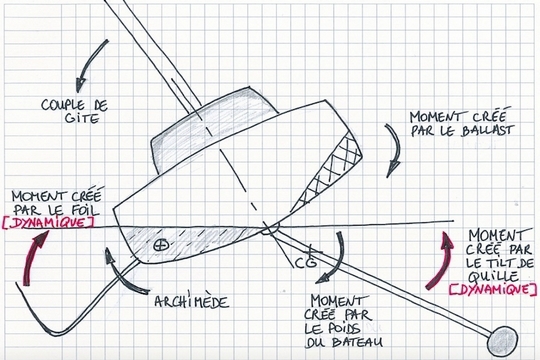 COUPLE DE
GITE
MOMENT CRÉÉ
PAR LE BALLAST
MOMENT CRÉÉ
PAR LE FOIL
[DYNAMIQUE]
ARCHIMÈDE
CG
MOMENT
CRÉÉ PAR
LE POIDS
DU BATEAU
MOMENT
CRÉÉ PAR
LE TILT DE
QUILLE
[DYNAMIQUE]